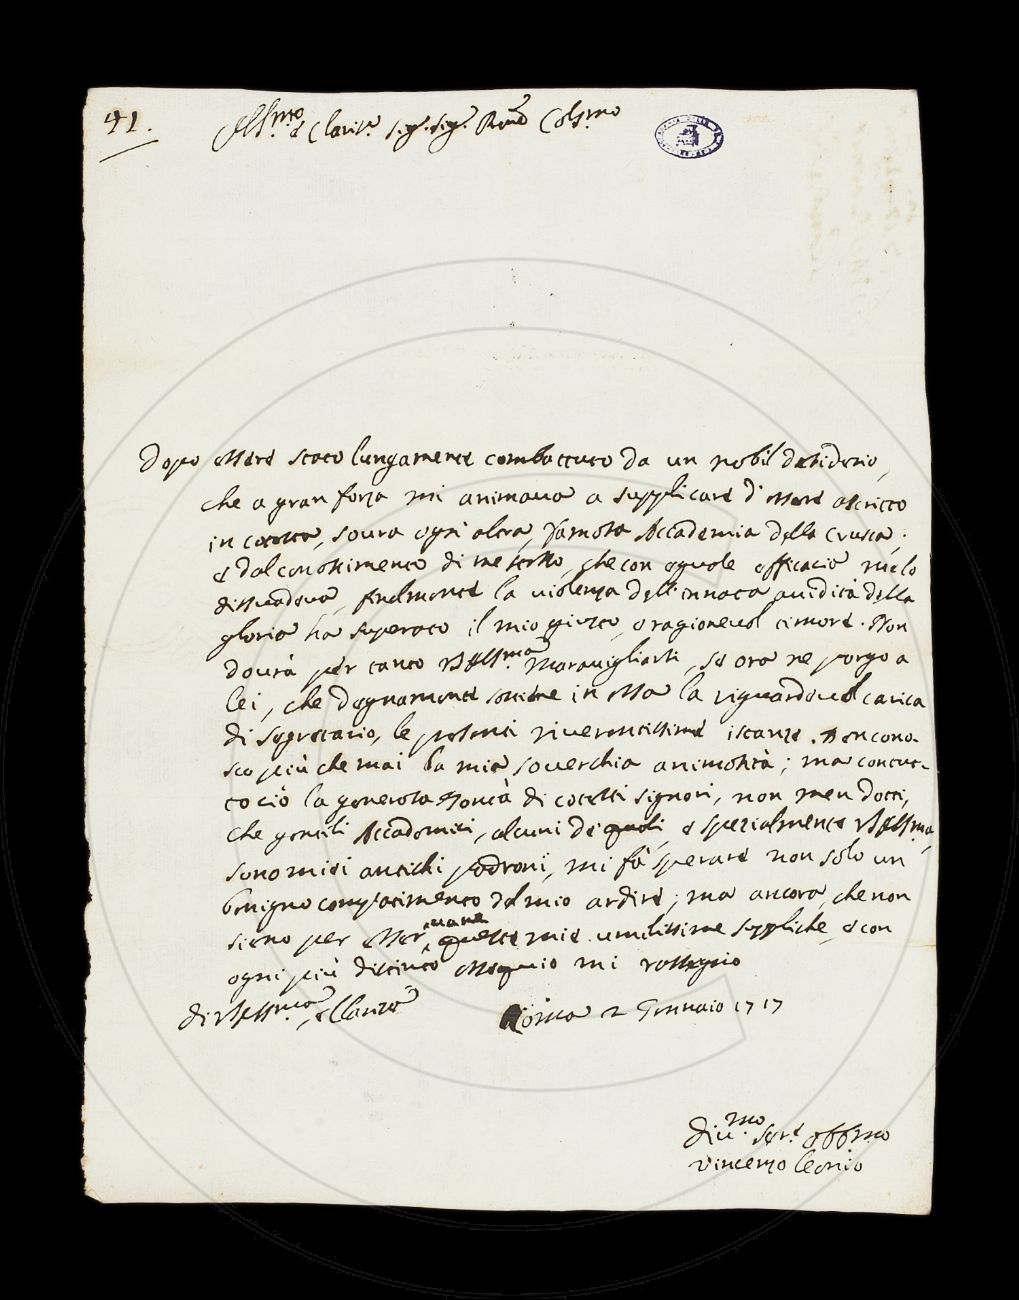 41.
Ill.mo e Clariss.o Sig.r Sig.r Pron Cols.mo
Dopo essere stato lungamente combattuto da un nobil desiderio,
che a gran forza mi animava a supplicare d'essere ascritto
in cotesta, sovra ogni altra, famosa Accademia della Crusca,
e dal conoscimento di me stesso, che con eguale efficacia me lo
dissuadeva, finalmente la violenza dell'innata avidità della
gloria ha superato il mio giusto, e ragionevol timore. Non
dovrà per tanto VSIll.ma maravigliarsi, se ora ne porgo a
lei, che degnamente sostiene in essa la riguardevol carica
di Segretario, le presenti riverentissime istanze. Ben cono-
sco più che mai la mia soverchia animosità; ma contut-
tociò la generosa bontà di cotesti Signori, non men dotti,
che gentili Accademici, alcuni de quali, e spezialmente VSIll.ma,
sono miei antichi padroni, mi fà sperare non solo un
benigno compatimento del mio ardire; ma ancora, che non
sieno per esser vane queste mie umilissime suppliche, e con
ogni più distinto ossequio mi rassegno
di VSIll.ma, e Clariss.a
Roma 2 Gennaio 1717
Div.mo Ser.e obb.mo
Vincenzo Leonio